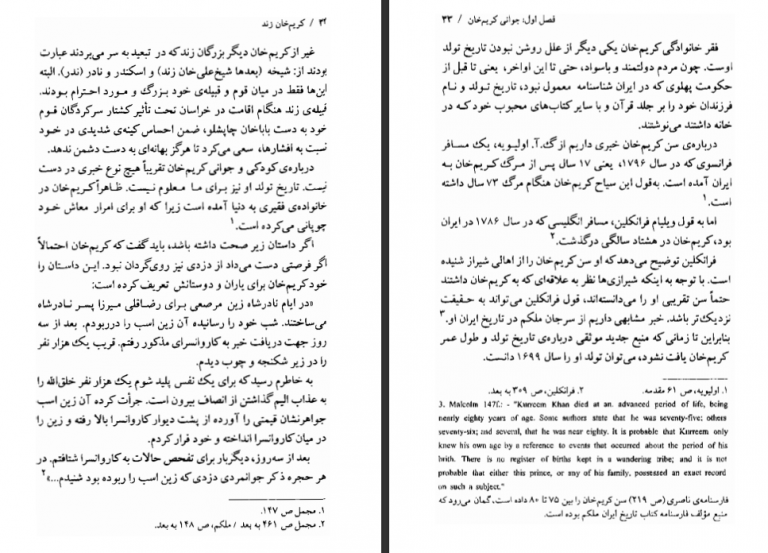 ۳۲ / کریم‌خان زند
غیر از کریم‌خان دیگر بزرگان زند که در تبعید به سر می‌بردند عبارت
بودند از: شیخه (بعدها شیخ‌علی‌خان زند) و اسکندر و نادر (ندر). البته
این‌ها فقط در میان قوم و قبیله‌ی خود بـزرگ و مورد احترام بودند.
قبله‌ی زند هنگام اقامت در خراسان تحت تأثیر کشتار سرکردگان قـوم
خود به دست باباخان چاپشلو، ضمن احساس کینه‌ی شدیدی در خـود
نسبت به افشارها، سعی می‌کرد تا هرگز بهانه‌ای به دست دشمن ندهد.
درباره‌ی کودکی و جوانی کریم‌خان تقریباً هیچ نوع خبری در دست
نیست. تاریخ تولد او نیز برای ما معلوم نیست. ظاهراً کریم‌خان در
خانواده‌ی فقیری به دنیا آمده است زیرا که او برای امرار معاش خـود
چوپانی می‌کرده است.۱
اگر داستان زیر صحت داشته باشد، باید گفت که کریم‌خان احتمالاً
اگر فرصتی دست می‌داد از دزدی نیز روی‌گردان نبود. ایـن داستـان را
خود کریم‌خان برای یاران و دوستانش تعریف کرده است:
«در ایام نادرشاه زین مرصعی برای رضاقلی میرزا پسـر نادرشاه
می‌ساختند. شب خود را رسانیده آن زین اسب را درربودم. بعد از سه
روز جهت دریافت خبر به کاروانسرای مذکور رفتم. قریب یک هزار نفر
را در زیر شکنجه و چوب دیدم.
به خاطرم رسید که برای یک نفس پلید شوم یک هزار نفر خلق‌الله را
به عذاب الیم گذاشتن از انصاف بیرون است. جرأت کرده آن زین اسب
جواهرنشان قیمتی را آورده از پشت دیوار کاروانسرا بالا رفته و زین را
در میان کاروانسرا انداخته و خود فرار کردم.
بعد از سه‌روز، دیگربار برای تفحص حالات به کاروانسرا شتافتم. در
هر حجره ذکر جوانمردی دزدی که زین اسب را ربوده بود شنیدم...»۲
۱. مجمل ص ۱۴۷.
۲. مجمل ص ۴۶۱ به بعد / ملکم، ص ۱۴۸ به بعد.
فصل اول، جوانی کریم‌خان / ۳۳
فقر خانوادگی کریم‌خان یکی دیگر از علل روشن نبودن تاریخ تولد
اوست. چون مردم دولتمند و باسواد، حتی تا این اواخر، یعنی تا قبل از
حکومت پهلوی که در ایران شناسنامه معمول نبود، تاریخ تولـد و نام
فرزندان خود را بر جلد قرآن و با سایر کتاب‌های محبوب خود کـه در
خانه داشتند می‌نوشتند.
درباره‌ی سن کریم‌خان خبری داریم از گ. آ. اولیویه، یک مسـافر
فرانسوی که در سال ۱۷۹۶، یعنی ۱۷ سال پس از مرگ کریم‌خان بـه
ایران آمده است. به‌قول این سیاح کریم‌خان هنگام مرگ ۷۳ سال داشته
است.۱
اما به قول ویلیام فرانکلین، مسافر انگلیسی که در سال ۱۷۸۶ در ایران
بود، کریم‌خان در هشتاد سالگی درگذشت.۲
فرانکلین توضیح می‌دهد که او سن کریم‌خان را از اهالی شیراز شنیده
است. با توجه به اینکه شیرازی‌ها نظر به علاقه‌ای که به کریم‌خان داشتند
حتماً سن تقریبی او را می‌دانسته‌اند، قول فرانکلین می‌تواند به حقیقت
نزدیک‌تر باشد. خبر مشابهی داریم از سرجان ملکم در تاریخ ایران او.۳
بنابراین تا زمانی که منبع جدید موثقی درباره‌ی تاریخ تولد و طول عمر
کریم‌خان یافت نشود، می‌توان تولد او را سال ۱۶۹۹ دانست.
۱. اولیویه، ص ۶۱ مقدمه. ۲. فرانکلین، ص ۳۰۹ به بعد.
3. Malcolm 147f.: - "Kurreem Khan died at an advanced period of life, being
nearly eighty years of age. Some authors state that he was seventy-five; others
seventy-six; and several, that he was near eighty. It is probable that Kurreem only
knew his own age by a reference to events that occurred about the period of his
birth. There is no register of births kept in a wandering tribe; and it is not
probable that either this prince, or any of his family, possessed an exact record
on such a subject."
فارسنامه‌ی ناصری (ص ۲۱۹) سن کریم‌خان را بین ۷۵ تا ۸۰ داده است. گمان می‌رود که
منبع مؤلف فارسنامه کتاب تاریخ ایران ملکم بوده است.